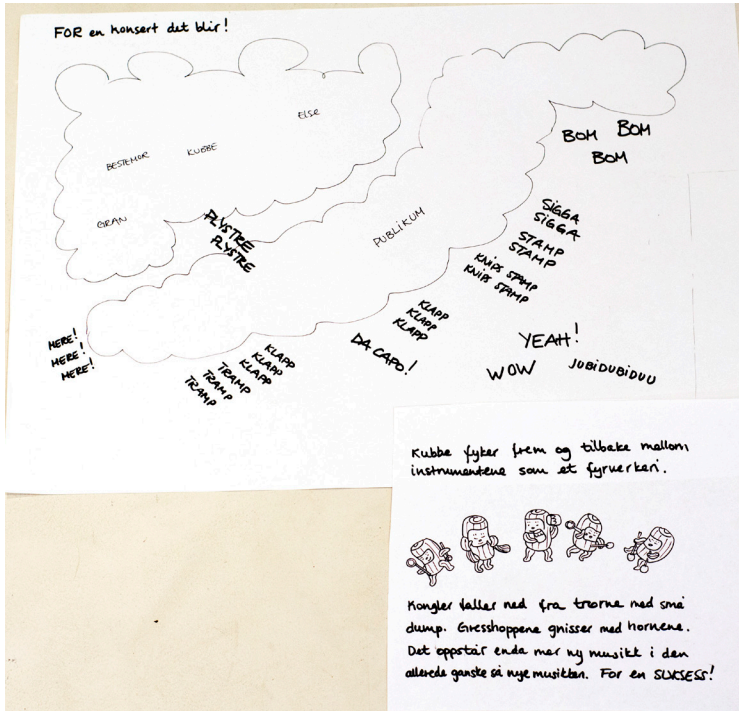 FOR en konsert det blir!
ELSE
BESTEMOR
KUBBE
GRAN
PLYSTRE
PLYSTRE
PUBLIKUM
BOM BOM
BOM
SIGGA
SIGGA
STAMP
STAMP
KNIPS STAMP
KNIPS STAMP
KLAPP
KLAPP
KLAPP
DA CAPO!
KLAPP
KLAPP
KLAPP
TRAMP
TRAMP
TRAMP
MERE!
MERE!
MERE!
YEAH!
WOW
JUBIDUBIDUU
Kubbe fyker frem og tilbake mellom
instrumentene som et fyrverkeri.
Kongler faller ned fra trærne med små
dump. Gresshoppene gnisser med hornene.
Det oppstår enda mer ny musikk i den
allerede ganske så nye musikken. For en SUKSESS!